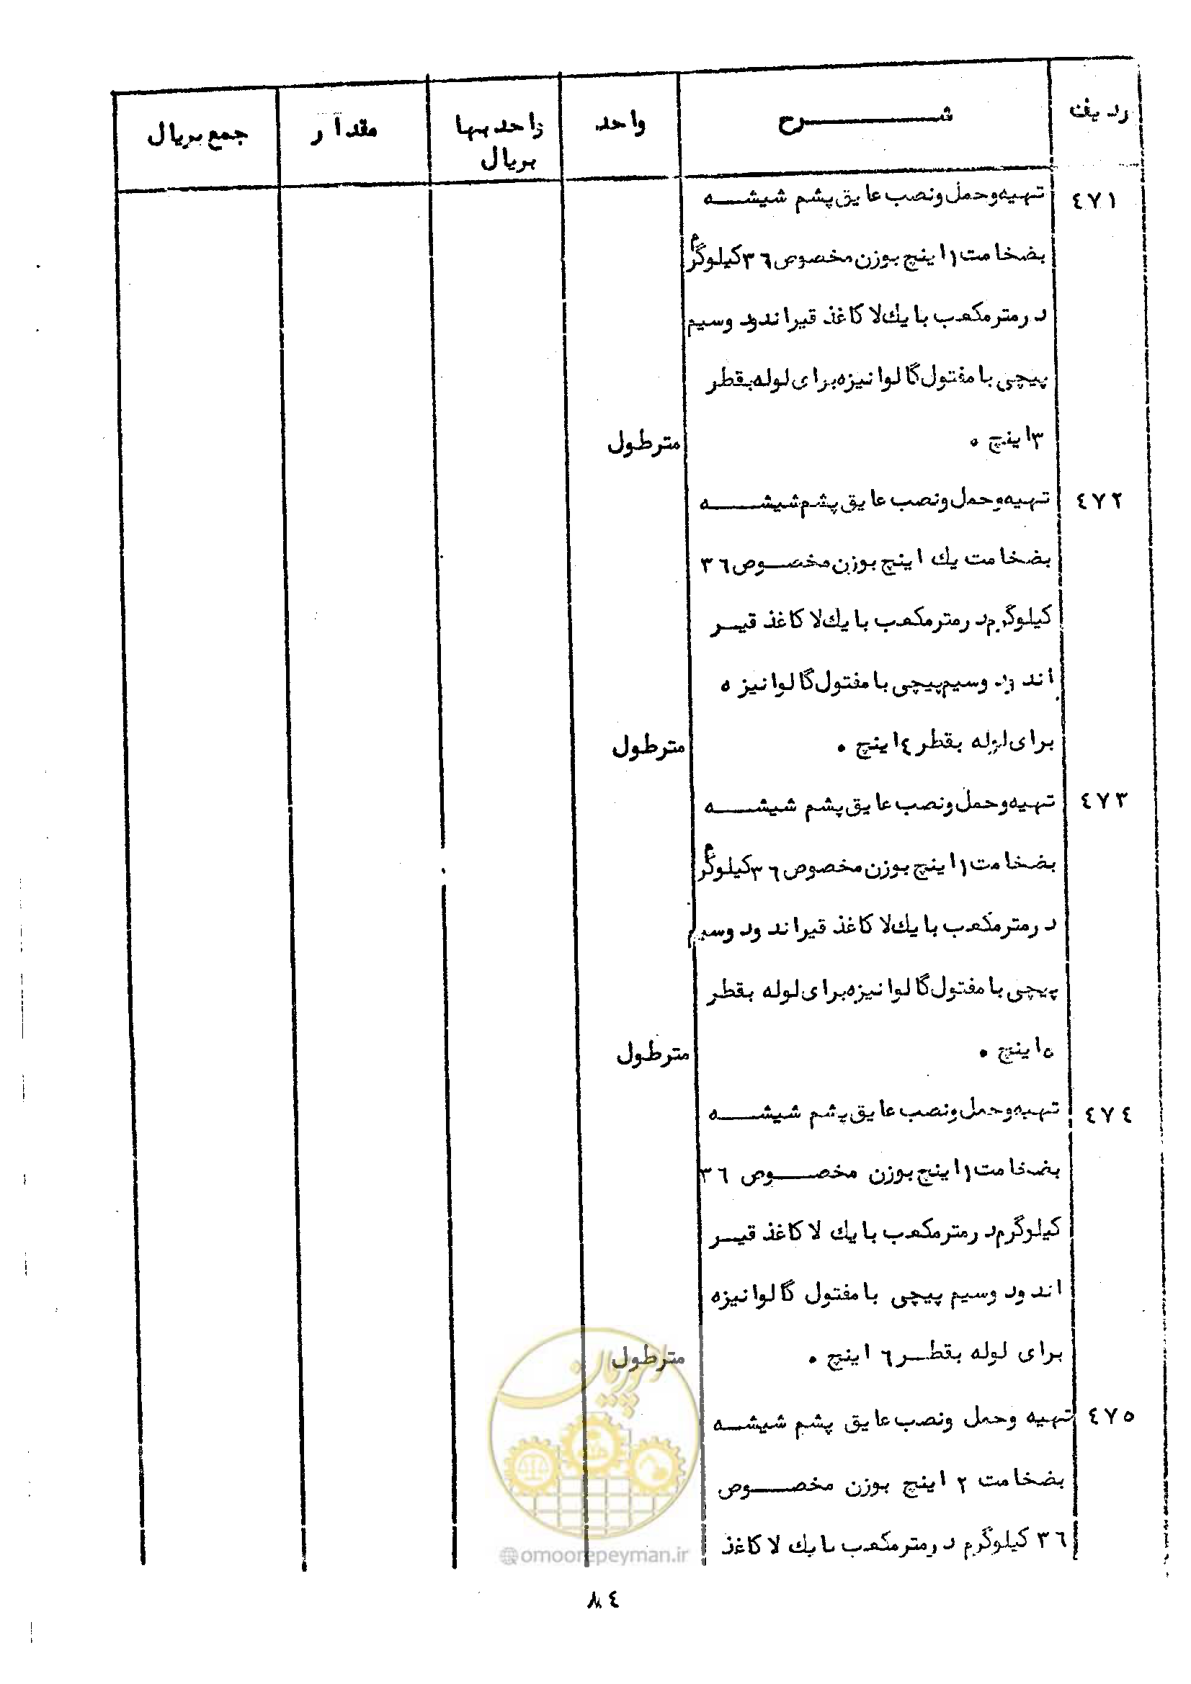 ردیف شرح واحد واحد بها مقدار جمع بریال
بریال
٤٧١ تهیه وحمل ونصب عایق پشم شیشه
بضخامت ۱ اینچ بوزن مخصوص ۳٦ کیلوگرم
درمترمکعب با یك لا کاغذ قیراندود وسیم
پیچی با مفتول گالوانیزه برای لوله بقطر
۳ اینچ ۰ مترطول
٤٧٢ تهیه وحمل ونصب عایق پشم شیشه
بضخامت یك اینچ بوزن مخصوص ۳٦
کیلوگرم درمترمکعب با یك لا کاغذ قیر
اندود وسیم پیچی با مفتول گالوانیزه
برای لوله بقطر ٤ اینچ ۰ مترطول
٤٧٣ تهیه وحمل ونصب عایق پشم شیشه
بضخامت ۱ اینچ بوزن مخصوص ۳٦ کیلوگرم
درمترمکعب با یك لا کاغذ قیراندود وسیم
پیچی با مفتول گالوانیزه برای لوله بقطر
٥ اینچ ۰ مترطول
٤٧٤ تهیه وحمل ونصب عایق پشم شیشه
بضخامت ۱ اینچ بوزن مخصوص ۳٦
کیلوگرم درمترمکعب با یك لا کاغذ قیر
اندود وسیم پیچی با مفتول گالوانیزه
برای لوله بقطر ٦ اینچ ۰ مترطول
٤٧٥ تهیه وحمل ونصب عایق پشم شیشه
بضخامت ۲ اینچ بوزن مخصوص
۳٦ کیلوگرم درمترمکعب با یك لا کاغذ
امور پیمان
@omoorepeyman.ir
٨٤